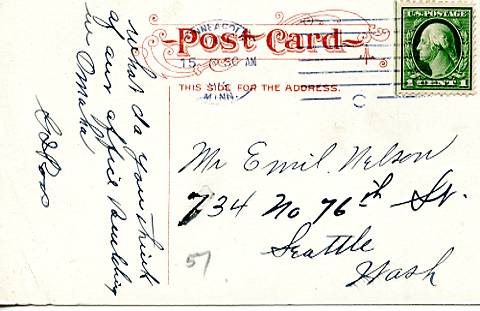 Post Card
THIS SIDE FOR THE ADDRESS.
U.S. POSTAGE
1 CENT 1
MINN.
What do you think
of our office Building
in Omaha
Mr Emil Nelson
734 No 76th St.
Seattle
Wash
57